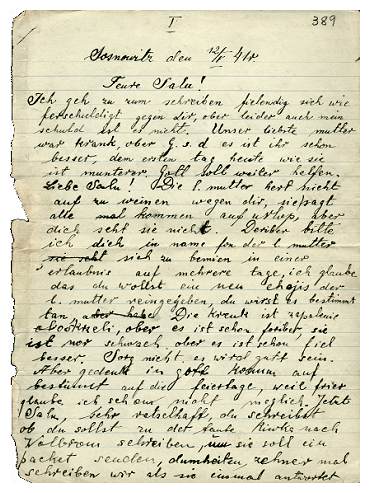 I
389
Sosnowitz den 12/V 41r.
Teure Sala!
Ich geh zu zum schreiben fielendig sich wie
ferschuldigt gegen dir, aber leider auch mein
schuld ist es nicht. Unser liebste mutter
war krank, ober G. s. d es ist ihr schon
besser, dem ersten tag heute wie sie
ist munterer. Gott soll weiter helfen.
Liebe Sala! Die l. mutter hert nicht
auf zu weinen wegen dir, sie sagt
alle mal kommen auf urlop, aber
dich seht sie nicht. Deriber bitte
ich dich in name fon der l. mutter
sich zu bemien in einer
erlaubnis auf mehrere tage, ich glaube
das du wollst ein neu chajes der
l. mutter reingegeben, du wirst es bestimmt
tan aber Die krenk ist zapalenie
ober es ist schon foriber, sie
ist nor schwach, ober es ist schon fiel
besser. Sorg nicht, es wird gutt sein.
Aber gedenk in gott komm auf
bestimt auf die feiertage, weil frier
glaube ich schon nicht meglich. Jetzt
Sala, sehr ratselhaft, du schreibst
ob du sollst zu der tante nach
Wolbrom schreiben, sie soll ein
packet senden, dumheiten, zehner mal
schreiben wir als sie einmal antwortet